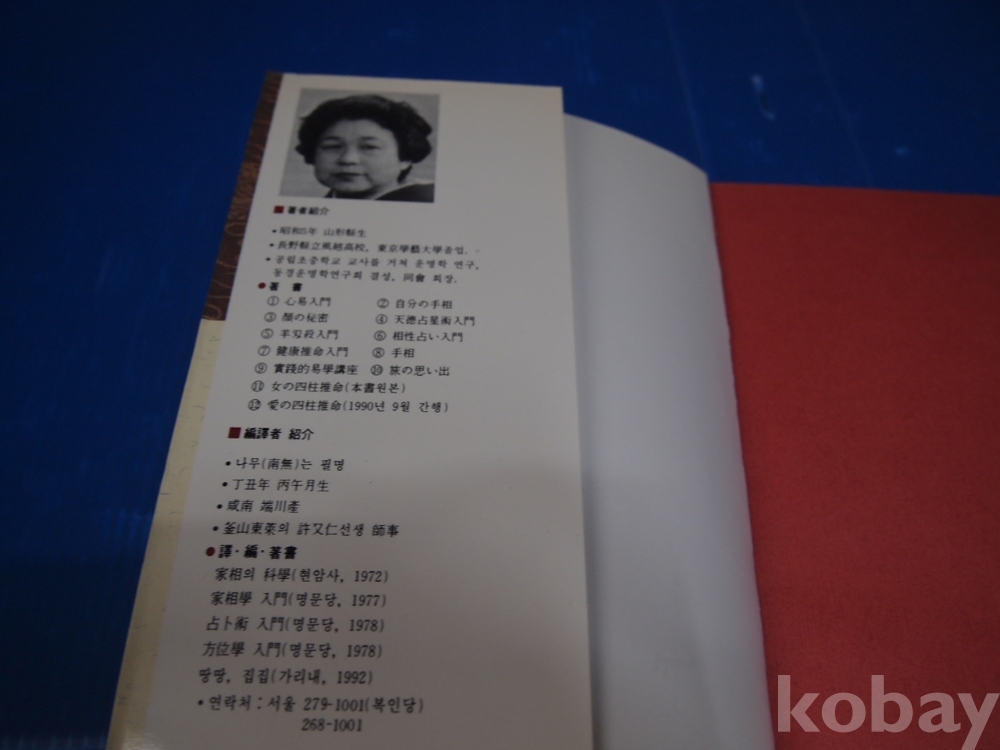 ■ 著者紹介
• 昭和5年 山形縣生
• 長野縣立風越高校, 東京學藝大學졸업.
• 공립초중학교 교사를 거쳐 운명학 연구,
동경운명학연구회 결성, 同會 회장.
● 著 書
① 心易入門 ② 自分の手相
③ 顔の秘密 ④ 天德占星術入門
⑤ 羊刃殺入門 ⑥ 相性占い入門
⑦ 健康推命入門 ⑧ 手相
⑨ 實踐的易學講座 ⑩ 旅の思い出
⑪ 女の四柱推命(本書원본)
⑫ 愛の四柱推命(1990년 9월 간행)
■ 編譯者 紹介
• 나무(南無)는 필명
• 丁丑年 丙午月生
• 咸南 端川產
• 釜山東萊의 許又仁선생 師事
● 譯·編·著書
家相의 科學(현암사, 1972)
家相學 入門(명문당, 1977)
占卜術 入門(명문당, 1978)
方位學 入門(명문당, 1978)
땅땅, 집집(가리내, 1992)
• 연락처 : 서울 279-1001(복인당)
268-1001
kobay